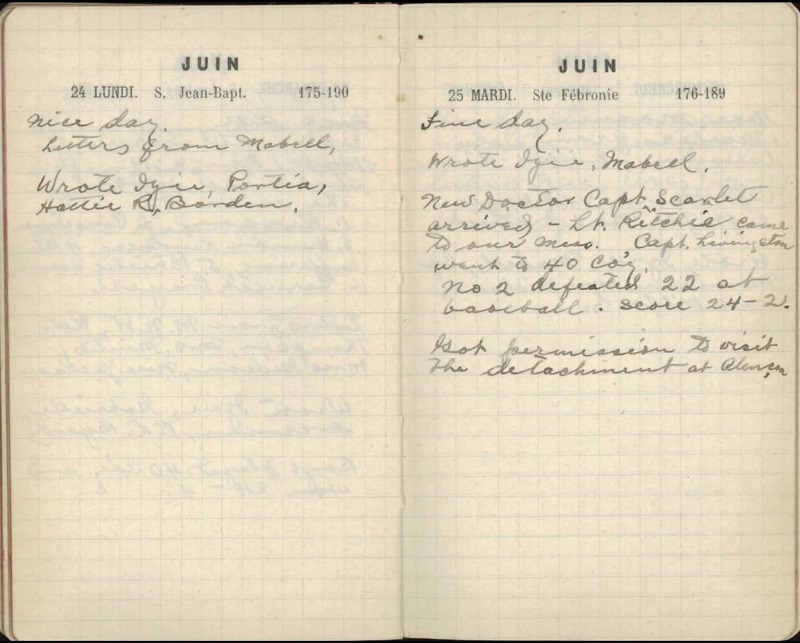 JUIN
24 LUNDI. S. Jean-Bapt. 175-190
Nice day.
Letters from Mabell,
Wrote Izie, Portia,
Hattie R, Borden.
JUIN
25 MARDI. Ste Fébronie 176-189
Fine day.
Wrote Izie, Mabell.
New Doctor Capt. Scarlet
arrived - Lt. Ritchie came
to our mess. Capt. Livingston
went to 40 Coy.
No 2 defeated 22 at
baseball. Score 24-2.
Got permission to visit
the detachment at Alencon